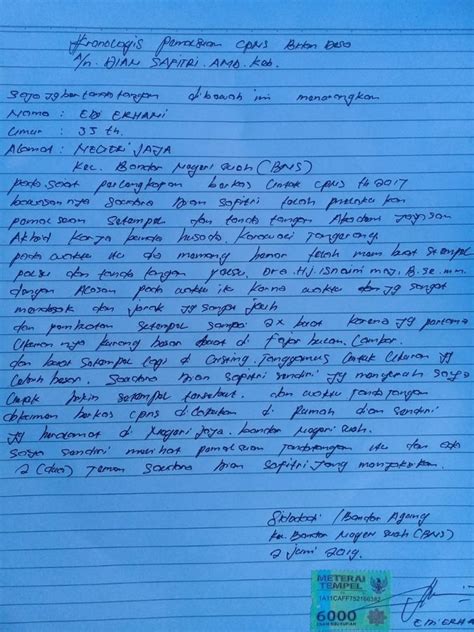 Kronologis Pemalsuan CPNS Bidan Desa
A/n. DIAN SAFITRI. AMD. Keb.
Saya yg bertanda tangan dibawah ini menerangkan
Nama : EDI ERHANI
Umur : 35 th.
Alamat : NEGERI JAYA
Kec. Bandar Negeri Suoh (BNS)
pada saat perlengkapan berkas untuk cpns th 2017
bawasannya Saudara Dian Safitri telah melakukan
pemalsuan Setempel dan tanda tangan Akademi
Akbid Karya bunda husada. Karawaci Tangerang
pada waktu itu dia memang benar telah membuat stempel
palsu dan tanda tangan palsu, Dra. Hj. Isnaini B.se.mm.
dengan Alasan pada waktu itu karna waktu yg sangat
mendesak dan jarak yg sangat jauh
dan pembuatan setempel sampai 2x buat karena yg pertama
Ukuran nya kurang besar buat di Fajar bulan. Lambar.
dan buat setempel lagi di Gisting. Tanggamus Untuk Ukuran yg
Lebih besar. Saudara Dian Safitri sendiri yg menyuruh saya
Untuk bikin setempel tersebut. dan waktu Tanda Tangan
dokumen berkas cpns di lakukan di Rumah dian sendiri
yg beralamat di Negeri Jaya. bandar Negeri Suoh.
Saya sendiri melihat pemalsuan Tandatangan itu dan ada
2 (dua) Teman Saudara Dian Safitri. yang menyaksikan.
/Bandar Agung
Kec. Bandar Negeri Suoh (BNS)
2 Juni 2019.
METERAI
TEMPEL
6000
ENAM RIBU RUPIAH
EDI ERHANI